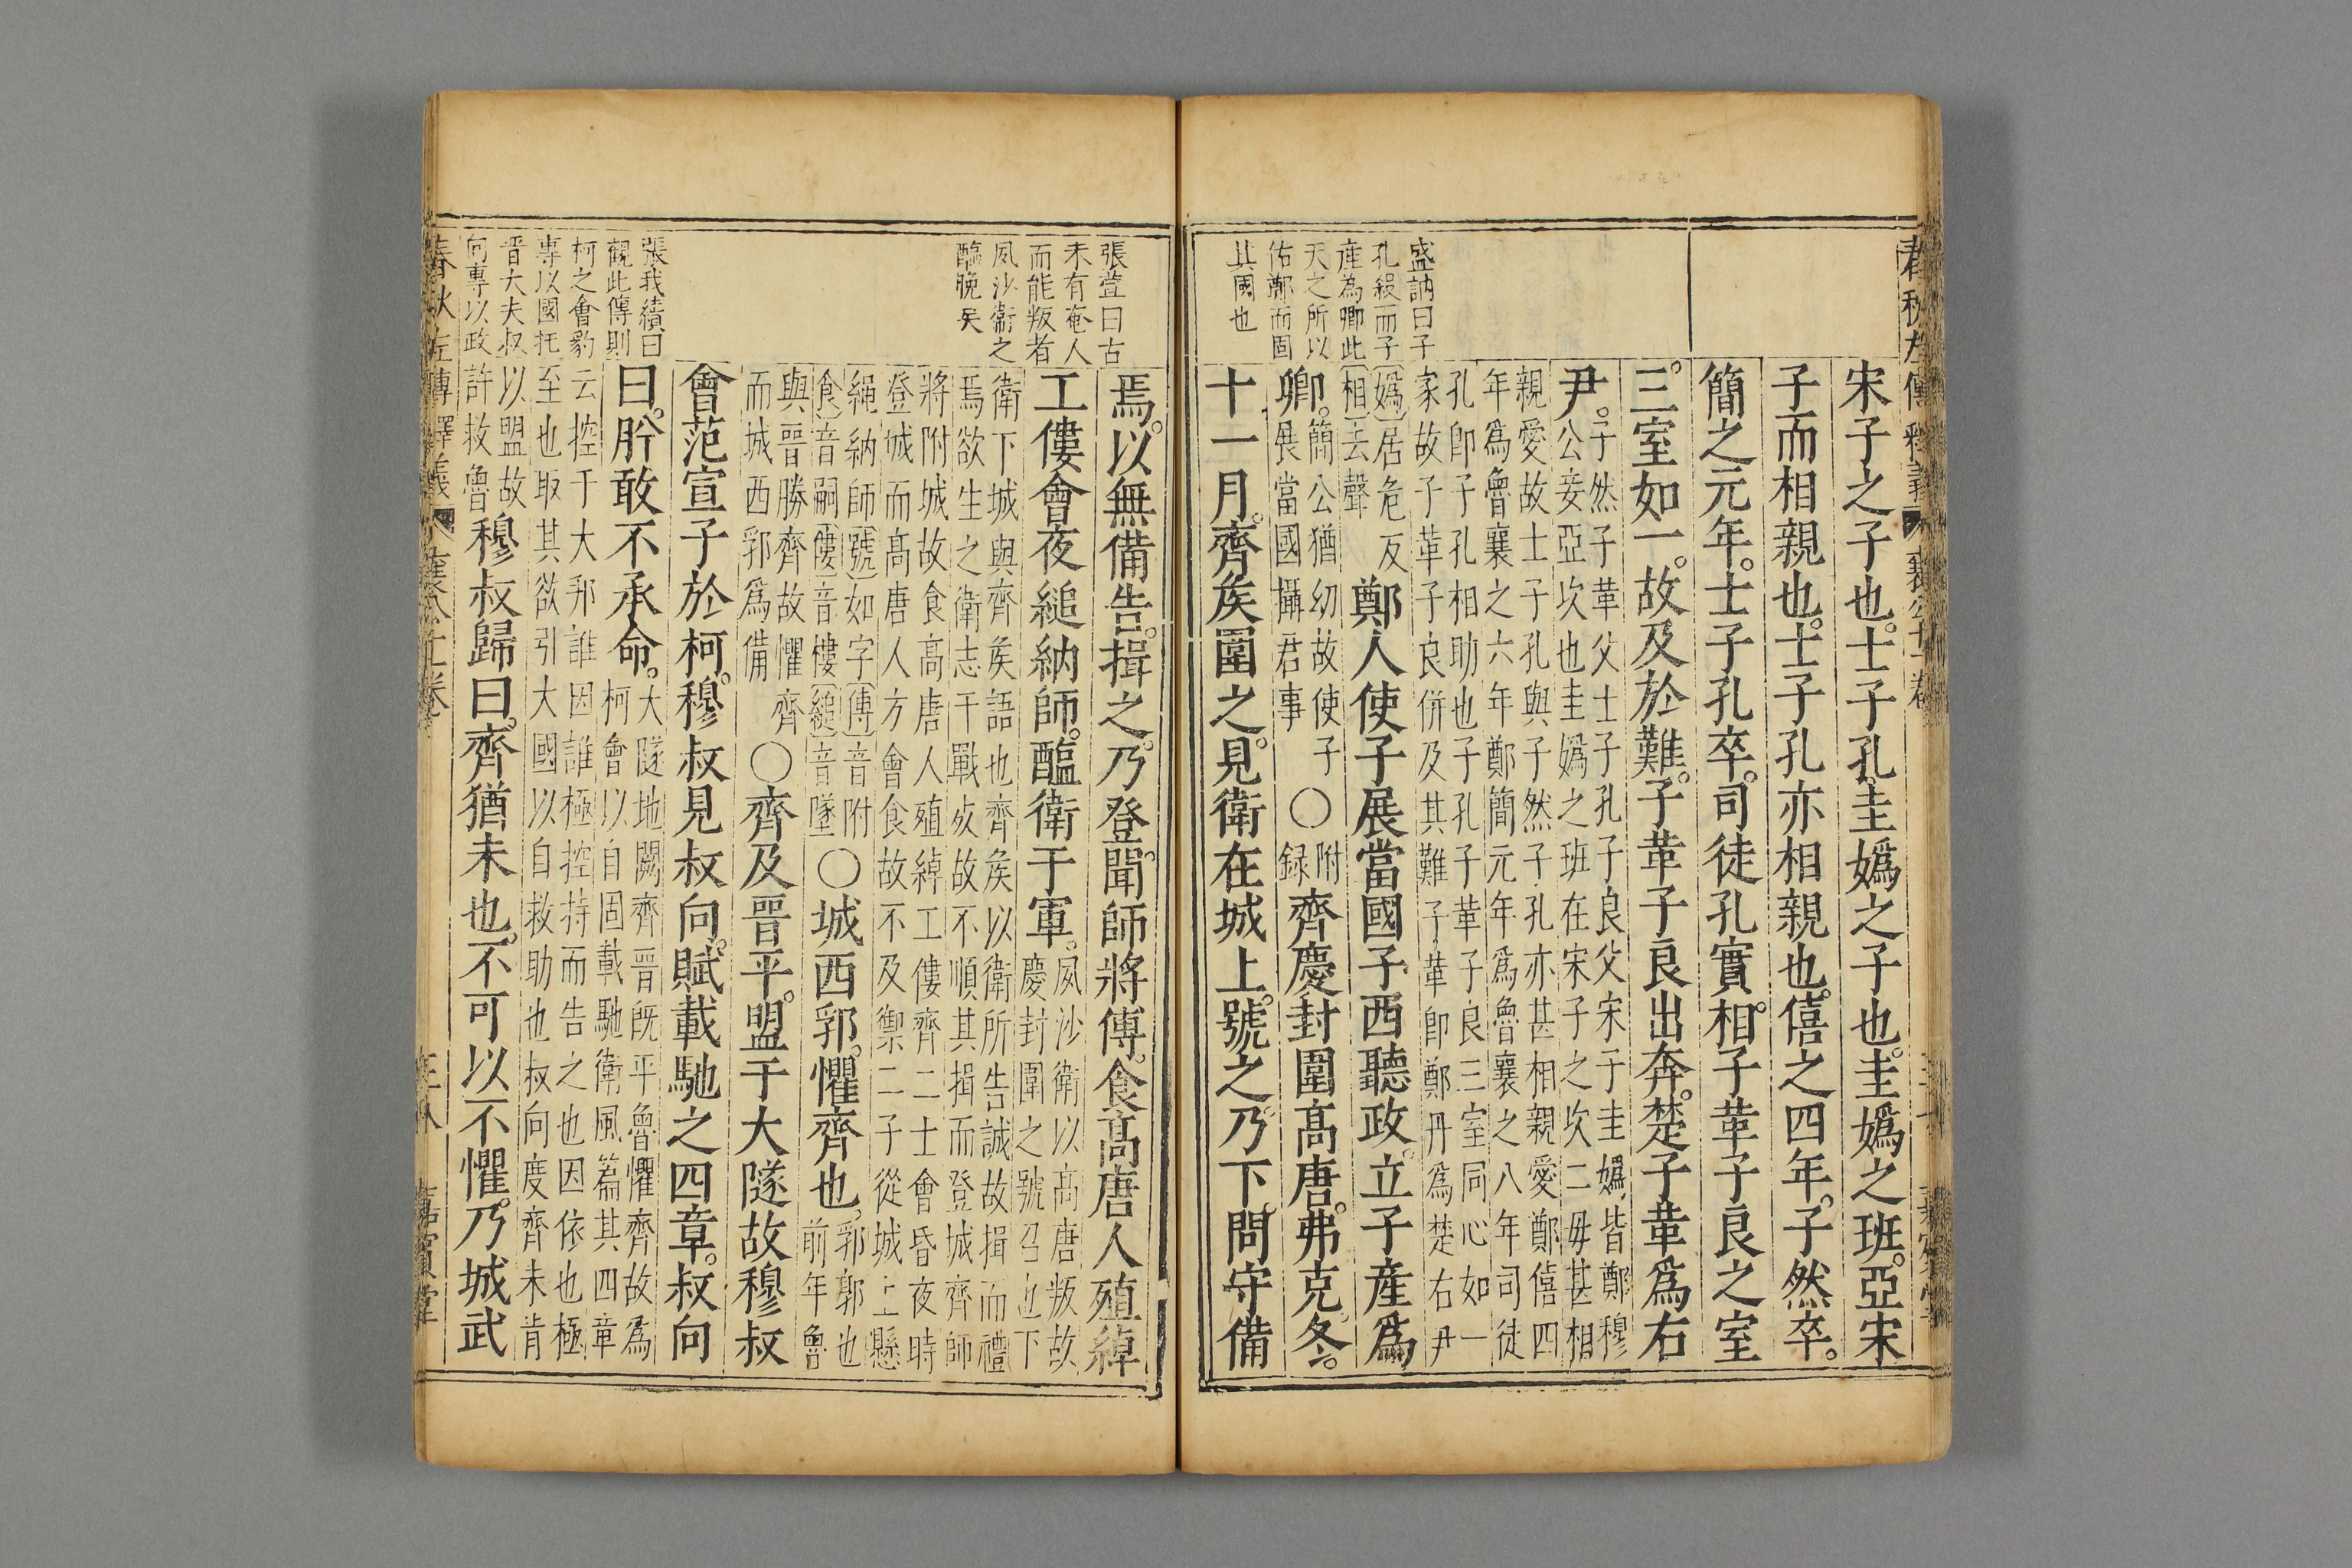 春秋左傳釋義
盛訥曰子
孔叚而子
産為卿此
天之所以
佑鄭而固
其國也
宋子之子也。士子孔圭嬀之子也。圭嬀之班。亞宋
子而相親也。士子孔亦相親也。僖之四年。子然卒。
簡之元年。士子孔卒。司徒孔實相子革子良之室
三室如一。故及於難。子革子良出奔。楚子革爲右
尹。
子然子革父士子孔子良父宋子圭嬀皆鄭穆
公妾亞次也圭嬀之班在宋子之次二母甚相
親愛故士子孔與子然子孔亦甚相親愛鄭僖四
年爲魯襄之六年鄭簡元年爲魯襄之八年司徒
孔卽子孔相助也子孔子革子良三室同心如一
家故子革子良併及其難子革卽鄭丹爲楚右尹
〔嬀〕居危反
〔相〕去聲
鄭人使子展當國子西聽政。立子産爲
卿。
簡公猶幼故使子
展當國攝君事
○附録齊慶封圍高唐。弗克。冬。
十一月。齊矦圍之。見衛在城上。號之。乃下。問守備
張萱曰古
未有奄人
而能叛者
夙沙衛之
醢晚矣
焉。以無備告。揖之。乃登。聞師將傅。食高唐人殖綽
工僂會夜縋納師。醢衛于軍。
夙沙衛以高唐叛故
慶封圍之號召也下
衛下城與齊矦語也齊矦以衛所告誠故揖而禮
焉欲生之衛志于戰歿故不順其揖而登城齊師
將附城故食高唐人殖綽工僂齊二士會昏夜時
登城而高唐人方會食故不及禦二子從城上懸
繩納師〔號〕如字〔傅〕音附
〔食〕音嗣〔僂〕音樓〔縋〕音墜
○城西郛。懼齊也。
郛郭也
前年魯
與晉勝齊故懼齊
而城西郛爲備
○齊及晉平。盟于大隧故穆叔
會范宣子於柯。穆叔見叔向。賦載馳之四章。叔向
曰。肸敢不承命。
大隧地闕齊晉旣平魯懼齊故爲
柯會以自固載馳衛風篇其四章
張我續曰
觀此傳則
柯之會豹
專以國托
晋大夫叔
向專以政
云控于大邦誰因誰極控持而告之也因依也極
至也取其欲引大國以自救助也叔向度齊未肯
以盟故
許救魯
穆叔歸曰。齊猶未也。不可以不懼。乃城武
春秋左傳釋義
嘉賓堂